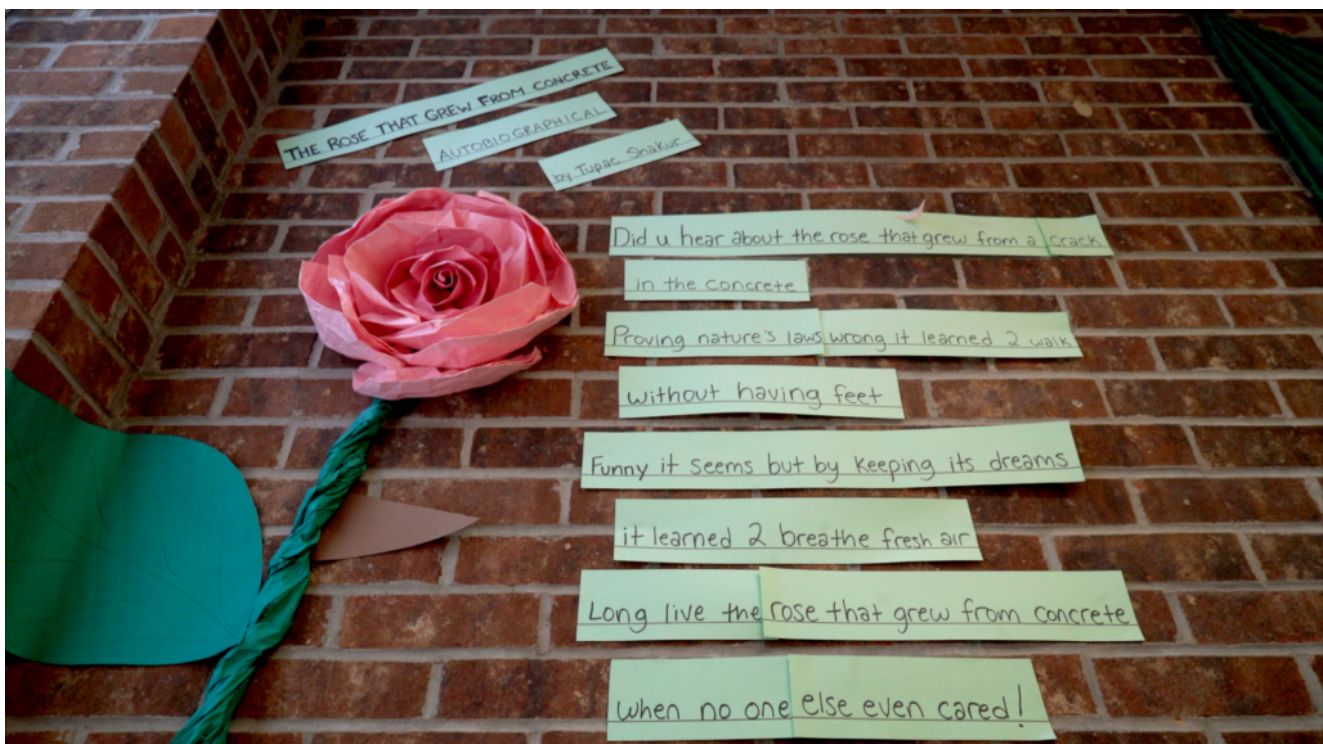 THE ROSE THAT GREW FROM CONCRETE
AUTOBIOGRAPHICAL
by Tupac Shakur
Did u hear about the rose that grew from a crack
in the concrete
Proving nature's laws wrong it learned 2 walk
without having feet
Funny it seems but by keeping its dreams
it learned 2 breathe fresh air
Long live the rose that grew from concrete
when no one else even cared!